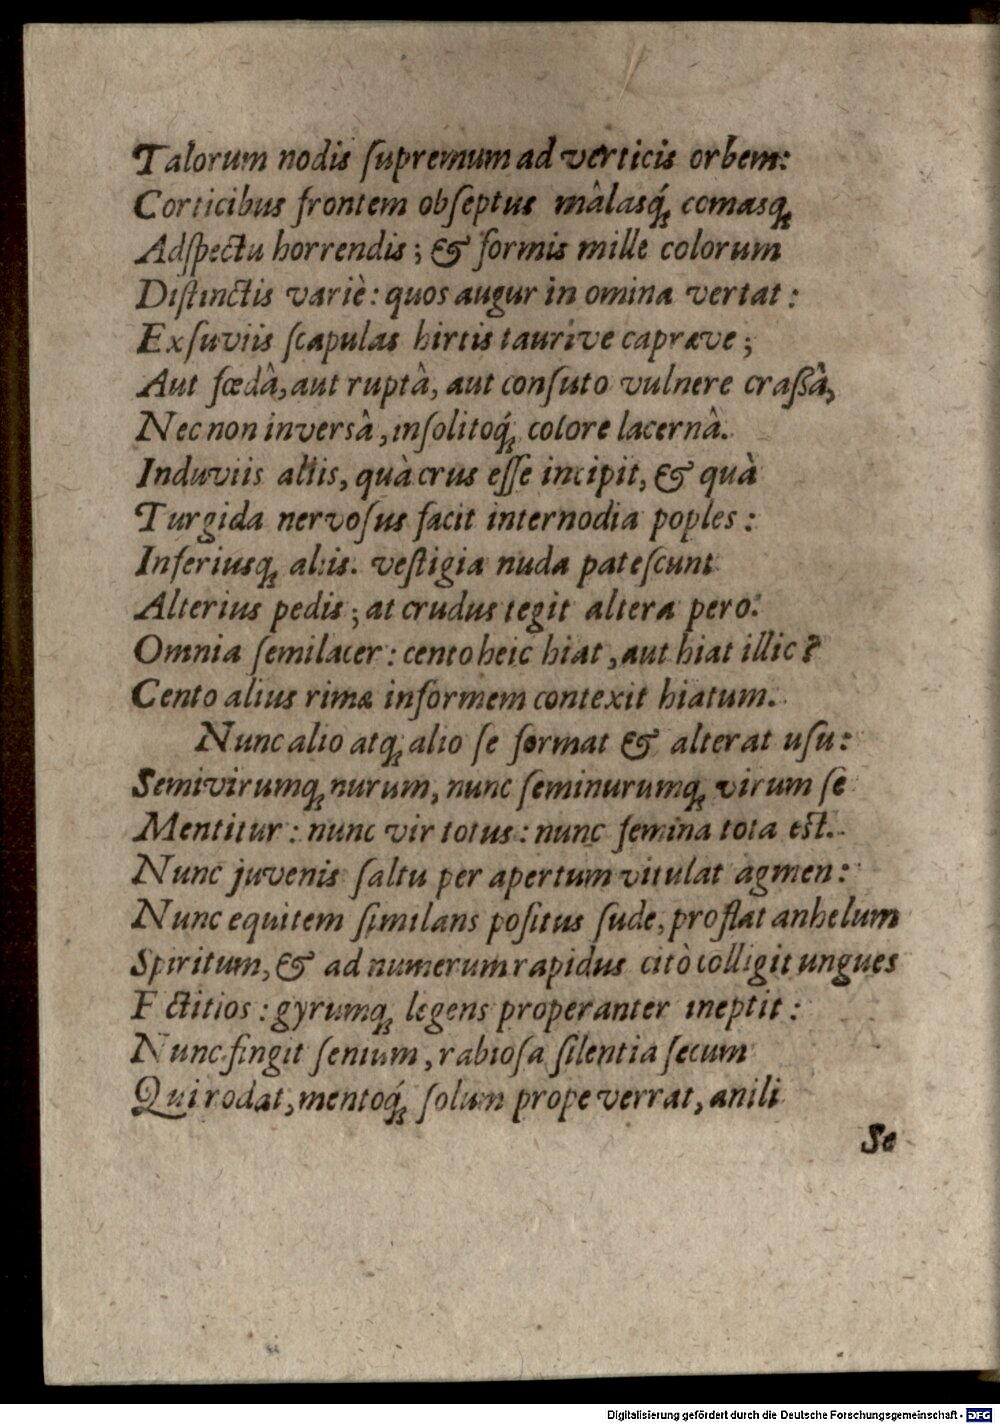 Talorum nodis ſupremum ad verticis orbem:
Corticibus frontem obſeptus mâlasq́ꝫ comasqꝫ
Adſpectu horrendis; & formis mille colorum
Diſtinctis variè: quos augur in omina vertat:
Exſuviis ſcapulas hirtis taurive capræve;
Aut fœdâ, aut ruptâ, aut conſuto vulnere craßâ,
Nec non inversâ, inſolitoq́ꝫ colore lacernâ.
Induviis aliis, quà crus eſſe incipit, & quà
Turgida nervoſus facit internodia poples:
Inferiusqꝫ aliis. veſtigia nuda pateſcunt
Alterius pedis; at crudus tegit altera pero.
Omnia ſemilacer: cento heic hiat, aut hiat illic?
Cento alius rimæ informem contexit hiatum.
Nunc alio atqꝫ alio ſe format & alterat uſu:
Semivirumqꝫ nurum, nunc ſeminurumqꝫ virum ſe
Mentitur: nunc vir totus: nunc femina tota eſt.
Nunc juvenis ſaltu per apertum vitulat agmen:
Nunc equitem ſimilans poſitus ſude, proflat anhelum
Spiritum, & ad numerum rapidus citò colligit ungues
F ctitios: gyrumqꝫ legens properanter ineptit:
Nunc fingit ſenium, rabioſa ſilentia ſecum
Qui rodat, mentoq́ꝫ ſolum prope verrat, anili
Se
Digitalisierung gefördert durch die Deutsche Forschungsgemeinschaft - DFG